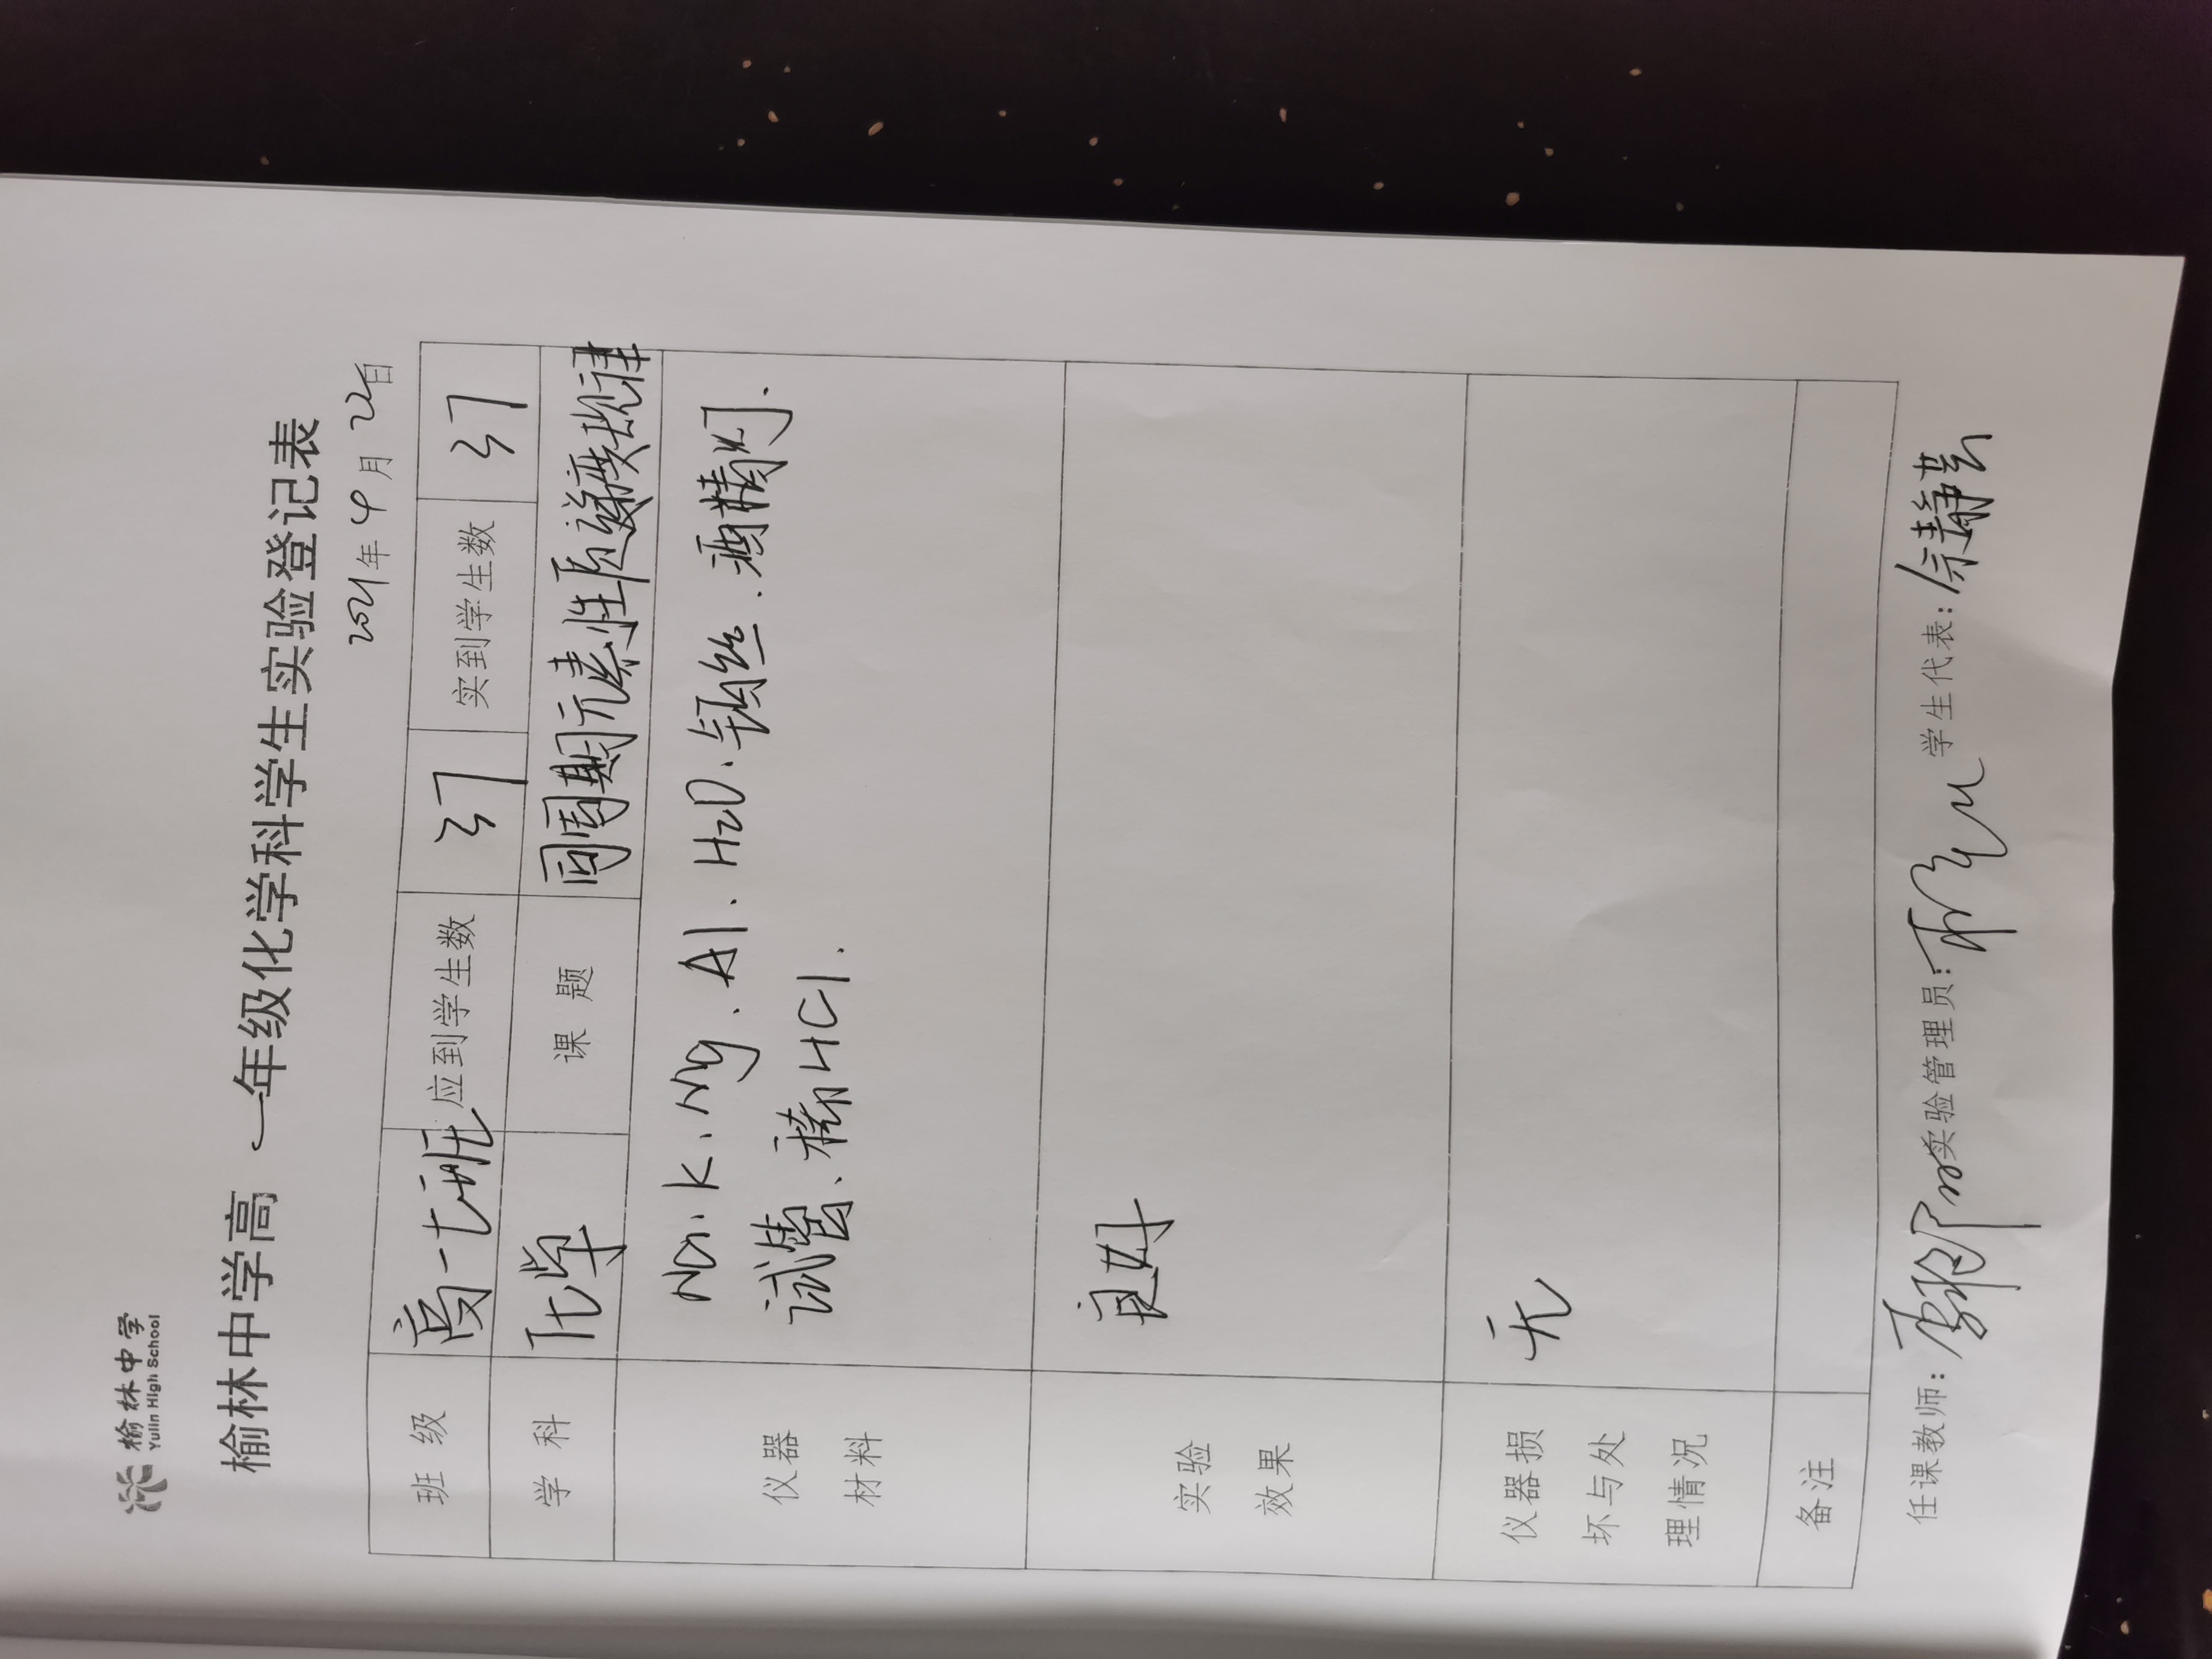 榆林中学
Yulin High School
榆林中学高一年级化学科学生实验登记表
2021年4月22日
班级 高一七班 应到学生数 37 实到学生数 37
学科 化学 课题 同周期元素性质递变规律
仪器材料 Na、K、Mg、Al、H2O、铂丝、酒精灯、
试管、稀HCl.
实验效果 良好
仪器损坏与处理情况 无
备注
任课教师: 实验管理员: 学生代表: 余静芸